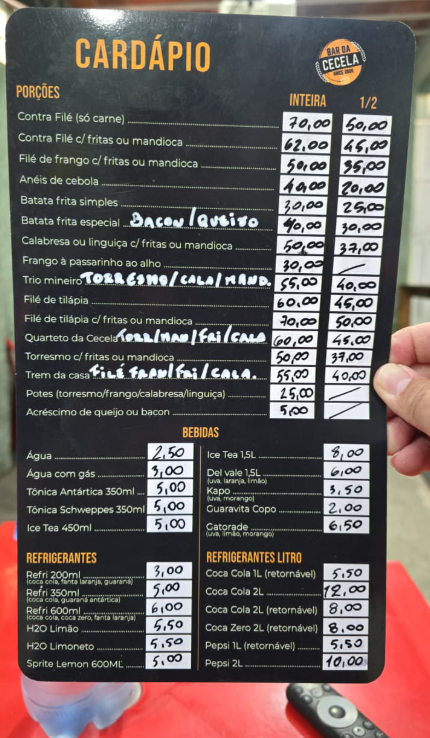 CARDÁPIO
BAR DA
CECELA
PORÇÕES INTEIRA 1/2
Contra Filé (só carne) 70,00 50,00
Contra Filé c/ fritas ou mandioca 62,00 45,00
Filé de frango c/ fritas ou mandioca 50,00 35,00
Anéis de cebola 40,00 20,00
Batata frita simples 30,00 25,00
Batata frita especial BACON/QUEIJO 40,00 30,00
Calabresa ou linguiça c/ fritas ou mandioca 50,00 37,00
Frango à passarinho ao alho 30,00
Trio mineiro TORRESMO/CALA/MAND. 55,00 40,00
Filé de tilápia 60,00 45,00
Filé de tilápia c/ fritas ou mandioca 70,00 50,00
Quarteto da Cecela TORR/MAN/FRI/CALA 60,00 45,00
Torresmo c/ fritas ou mandioca 50,00 37,00
Trem da casa FILÉ FRAN/FRI/CALA. 55,00 40,00
Potes (torresmo/frango/calabresa/linguiça) 25,00
Acréscimo de queijo ou bacon 5,00
BEBIDAS
Água 2,50
Água com gás 3,00
Tônica Antártica 350ml 5,00
Tônica Schweppes 350ml 5,00
Ice Tea 450ml 5,00
Ice Tea 1,5L 8,00
Del vale 1,5L 6,00
(uva, laranja, limão)
Kapo 3,50
(uva, morango)
Guaravita Copo 2,00
Gatorade 6,50
(uva, limão, morango)
REFRIGERANTES
Refri 200ml 3,00
(coca cola, fanta laranja, guaraná)
Refri 350ml 5,00
(coca cola, guaraná antártica)
Refri 600ml 6,00
(coca cola, coca zero, fanta laranja)
H2O Limão 5,50
H2O Limoneto 5,50
Sprite Lemon 600ML 5,00
REFRIGERANTES LITRO
Coca Cola 1L (retornável) 5,50
Coca Cola 2L 12,00
Coca Cola 2L (retornável) 8,00
Coca Zero 2L (retornável) 8,00
Pepsi 1L (retornável) 5,50
Pepsi 2L 10,00